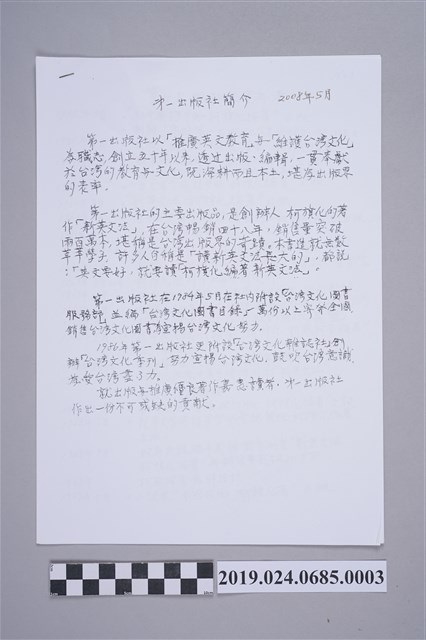 第一出版社簡介 2008年5月
第一出版社以「推廣英文教育」与「維護台湾文化」
為職志,創立五十年以來,透过出版、編輯,一貫奉献
於台湾的教育与文化,既海耕而且本土,堪為出版界
的表率。
第一出版社的主要出版品,是創辦人 柯旗化的著
作「新英文法」,在台湾暢銷四十八年,銷售量突破
兩百萬本,堪稱是台湾出版界的奇蹟。本書造就無数
莘莘學子,許多人自稱是「讀新英文法長大的」,都説
:「英文要好,就要讀柯旗化編著新英文法」。
第一出版社在1984年5月在社内附設「台湾文化圖書
服務部」並編「台湾文化圖書目録」萬份以上寄至全國
銷售台湾文化圖書与宣揚台湾文化努力。
1986年第一出版社更附設「台湾文化雜誌社」創
辦「台湾文化季刊」努力宣揚台湾文化,鼓吹台湾意識
為愛台湾盡了力。
就出版与推廣優良著作嘉惠讀者,第一出版社
作出一份不可或缺的貢献。
2019.024.0685.0003